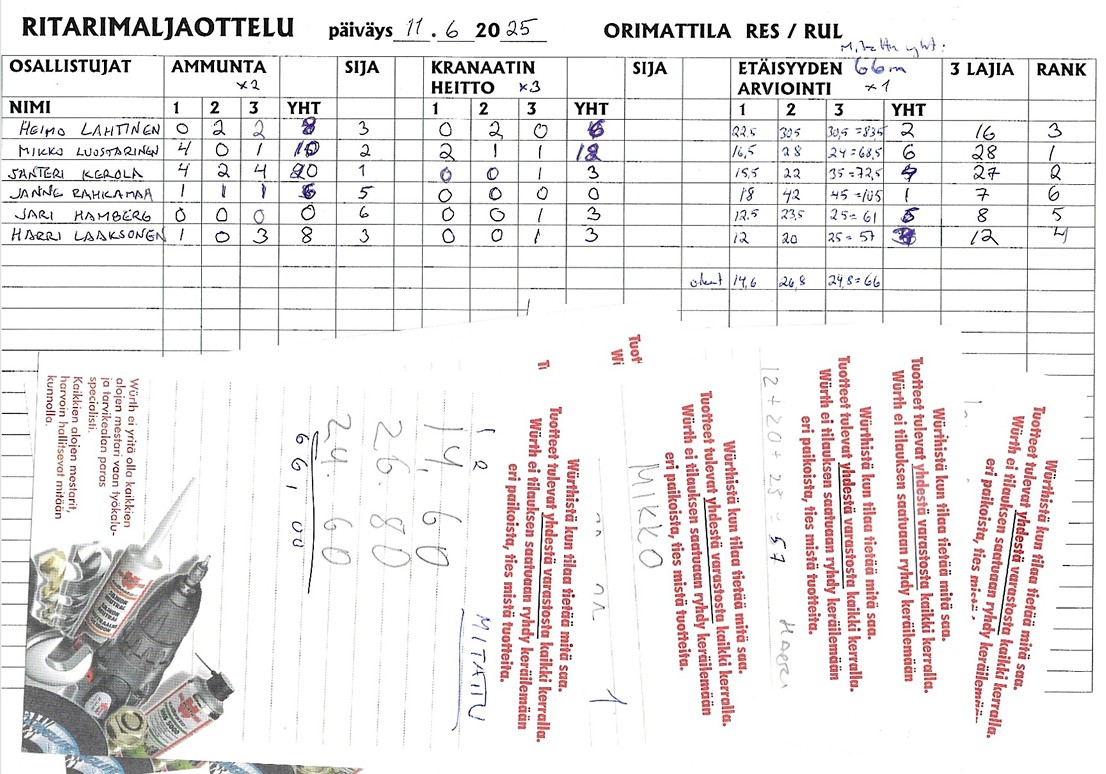 RITARIMALJAOTTELU päiväys 11.6 2025 ORIMATTILA RES / RUL
OSALLISTUJAT AMMUNTA x2 SIJA KRANAATIN HEITTO x3 SIJA ETÄISYYDEN 66m ARVIOINTI x1 3 LAJIA RANK
NIMI 1 2 3 YHT 1 2 3 YHT 1 2 3 YHT
HEIMO LAHTINEN 0 2 2 8 3 0 2 0 6 22,5 30,5 30,5 =83,5 2 16 3
MIKKO LUOSTARINEN 4 0 1 10 2 2 1 1 12 16,5 28 24 =68,5 6 28 1
SANTERI KEROLA 4 2 4 20 1 0 0 1 3 15,5 22 35 =72,5 27 2
JANNE RAHKAMAA 1 1 1 6 5 0 0 0 0 18 42 45 =105 1 7 6
JARI HAMBERG 0 0 0 0 6 0 0 1 3 12,5 23,5 25 = 61 5 8 5
HARRI LAAKSONEN 1 0 3 8 3 0 0 1 3 12 20 25 = 57 12 4
14,6 26,8 24,8 = 66
Würth ei yritä olla kaikkien
alojen mestari vaan työkalu-
ja tarvikealan paras
specialisti.
Kaikkien alojen mestarit,
harvoin hallitsevat mitään
kunnolla.
14,60
26.80
24.60
66,00
1 2
MITATTU
Würthistä kun tilaa tietää mitä saa.
Tuotteet tulevat yhdestä varastosta kaikki kerralla.
Würth ei tilauksen saatuaan ryhdy keräilemään
eri paikoista, ties mistä tuotteita.
Tuot
Wi
MIKKO
1
Würthistä kun tilaa tietää mitä saa.
Tuotteet tulevat yhdestä varastosta kaikki kerralla.
Würth ei tilauksen saatuaan ryhdy keräilemään
eri paikoista, ties mistä tuotteita.
12+20+25=57 HARRI
Würthistä kun tilaa tietää mitä saa.
Tuotteet tulevat yhdestä varastosta kaikki kerralla.
Würth ei tilauksen saatuaan ryhdy keräilemään
eri paikoista, ties mistä tuotteita.
Würthistä kun tilaa tietää mitä saa.
Tuotteet tulevat yhdestä varastosta kaikki kerralla.
Würth ei tilauksen saatuaan ryhdy keräilemään
Würthistä kun tilaa tietää mitä saa.
Tuotteet tulevat yhdestä varastosta kaikki kerralla.
Würth ei tilauksen saatuaan ryhdy keräilemään
eri paikoista, ties